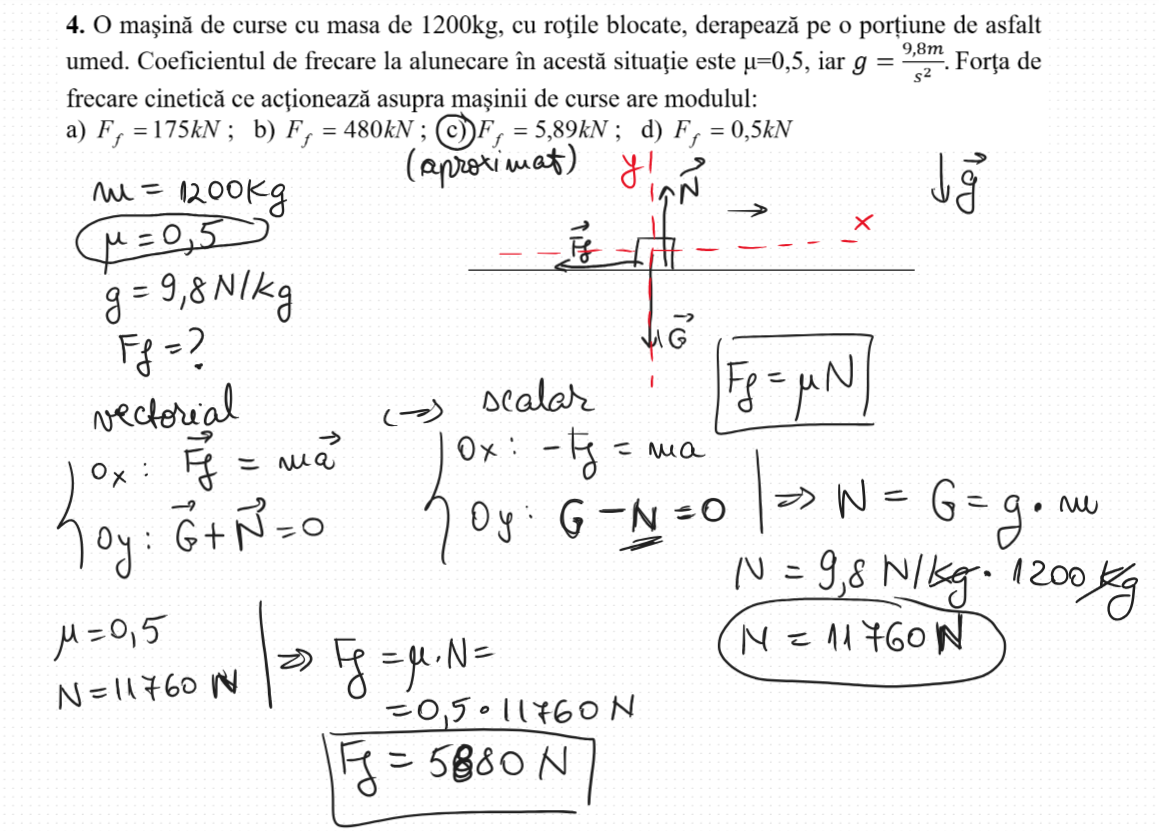 4. O mașină de curse cu masa de 1200kg, cu roțile blocate, derapează pe o porțiune de asfalt
umed. Coeficientul de frecare la alunecare în acestă situație este μ=0,5, iar g = 9,8m/s². Forța de
frecare cinetică ce acționează asupra mașinii de curse are modulul:
a) F_f = 175kN ; b) F_f = 480kN ; c) F_f = 5,89kN ; d) F_f = 0,5kN
(aproximat)
m = 1200kg
μ = 0,5
g = 9,8 N/kg
Ff = ?
y
N⃗
x
F⃗f
G⃗
g⃗
Ff = μN
vectorial ⟷ scalar
Ox : F⃗f = ma⃗
Oy : G⃗ + N⃗ = 0
Ox : -Ff = ma
Oy : G - N = 0 | ⇒ N = G = g · m
N = 9,8 N/kg · 1200 kg
N = 11760 N
μ = 0,5
N = 11760 N | ⇒ Ff = μ·N =
= 0,5 · 11760 N
Ff = 5880 N